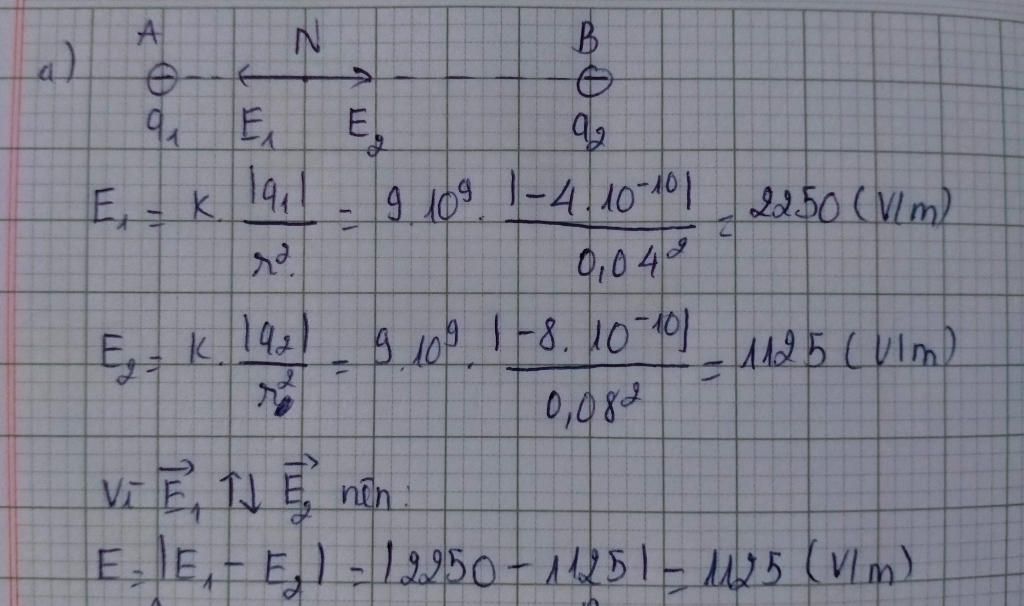 a) A N B
q₁ E₁ E₂ q₂
E₁ = k. |q₁|/r². = 9.10⁹. |-4.10⁻¹⁰|/0,04² = 2250 (V/m)
E₂ = k. |q₂|/r² = 9.10⁹. |-8.10⁻¹⁰|/0,08² = 1125 (V/m)
Vì E₁→ ↑↓ E₂→ nên:
E = |E₁ - E₂| = |2250 - 1125| = 1125 (V/m)